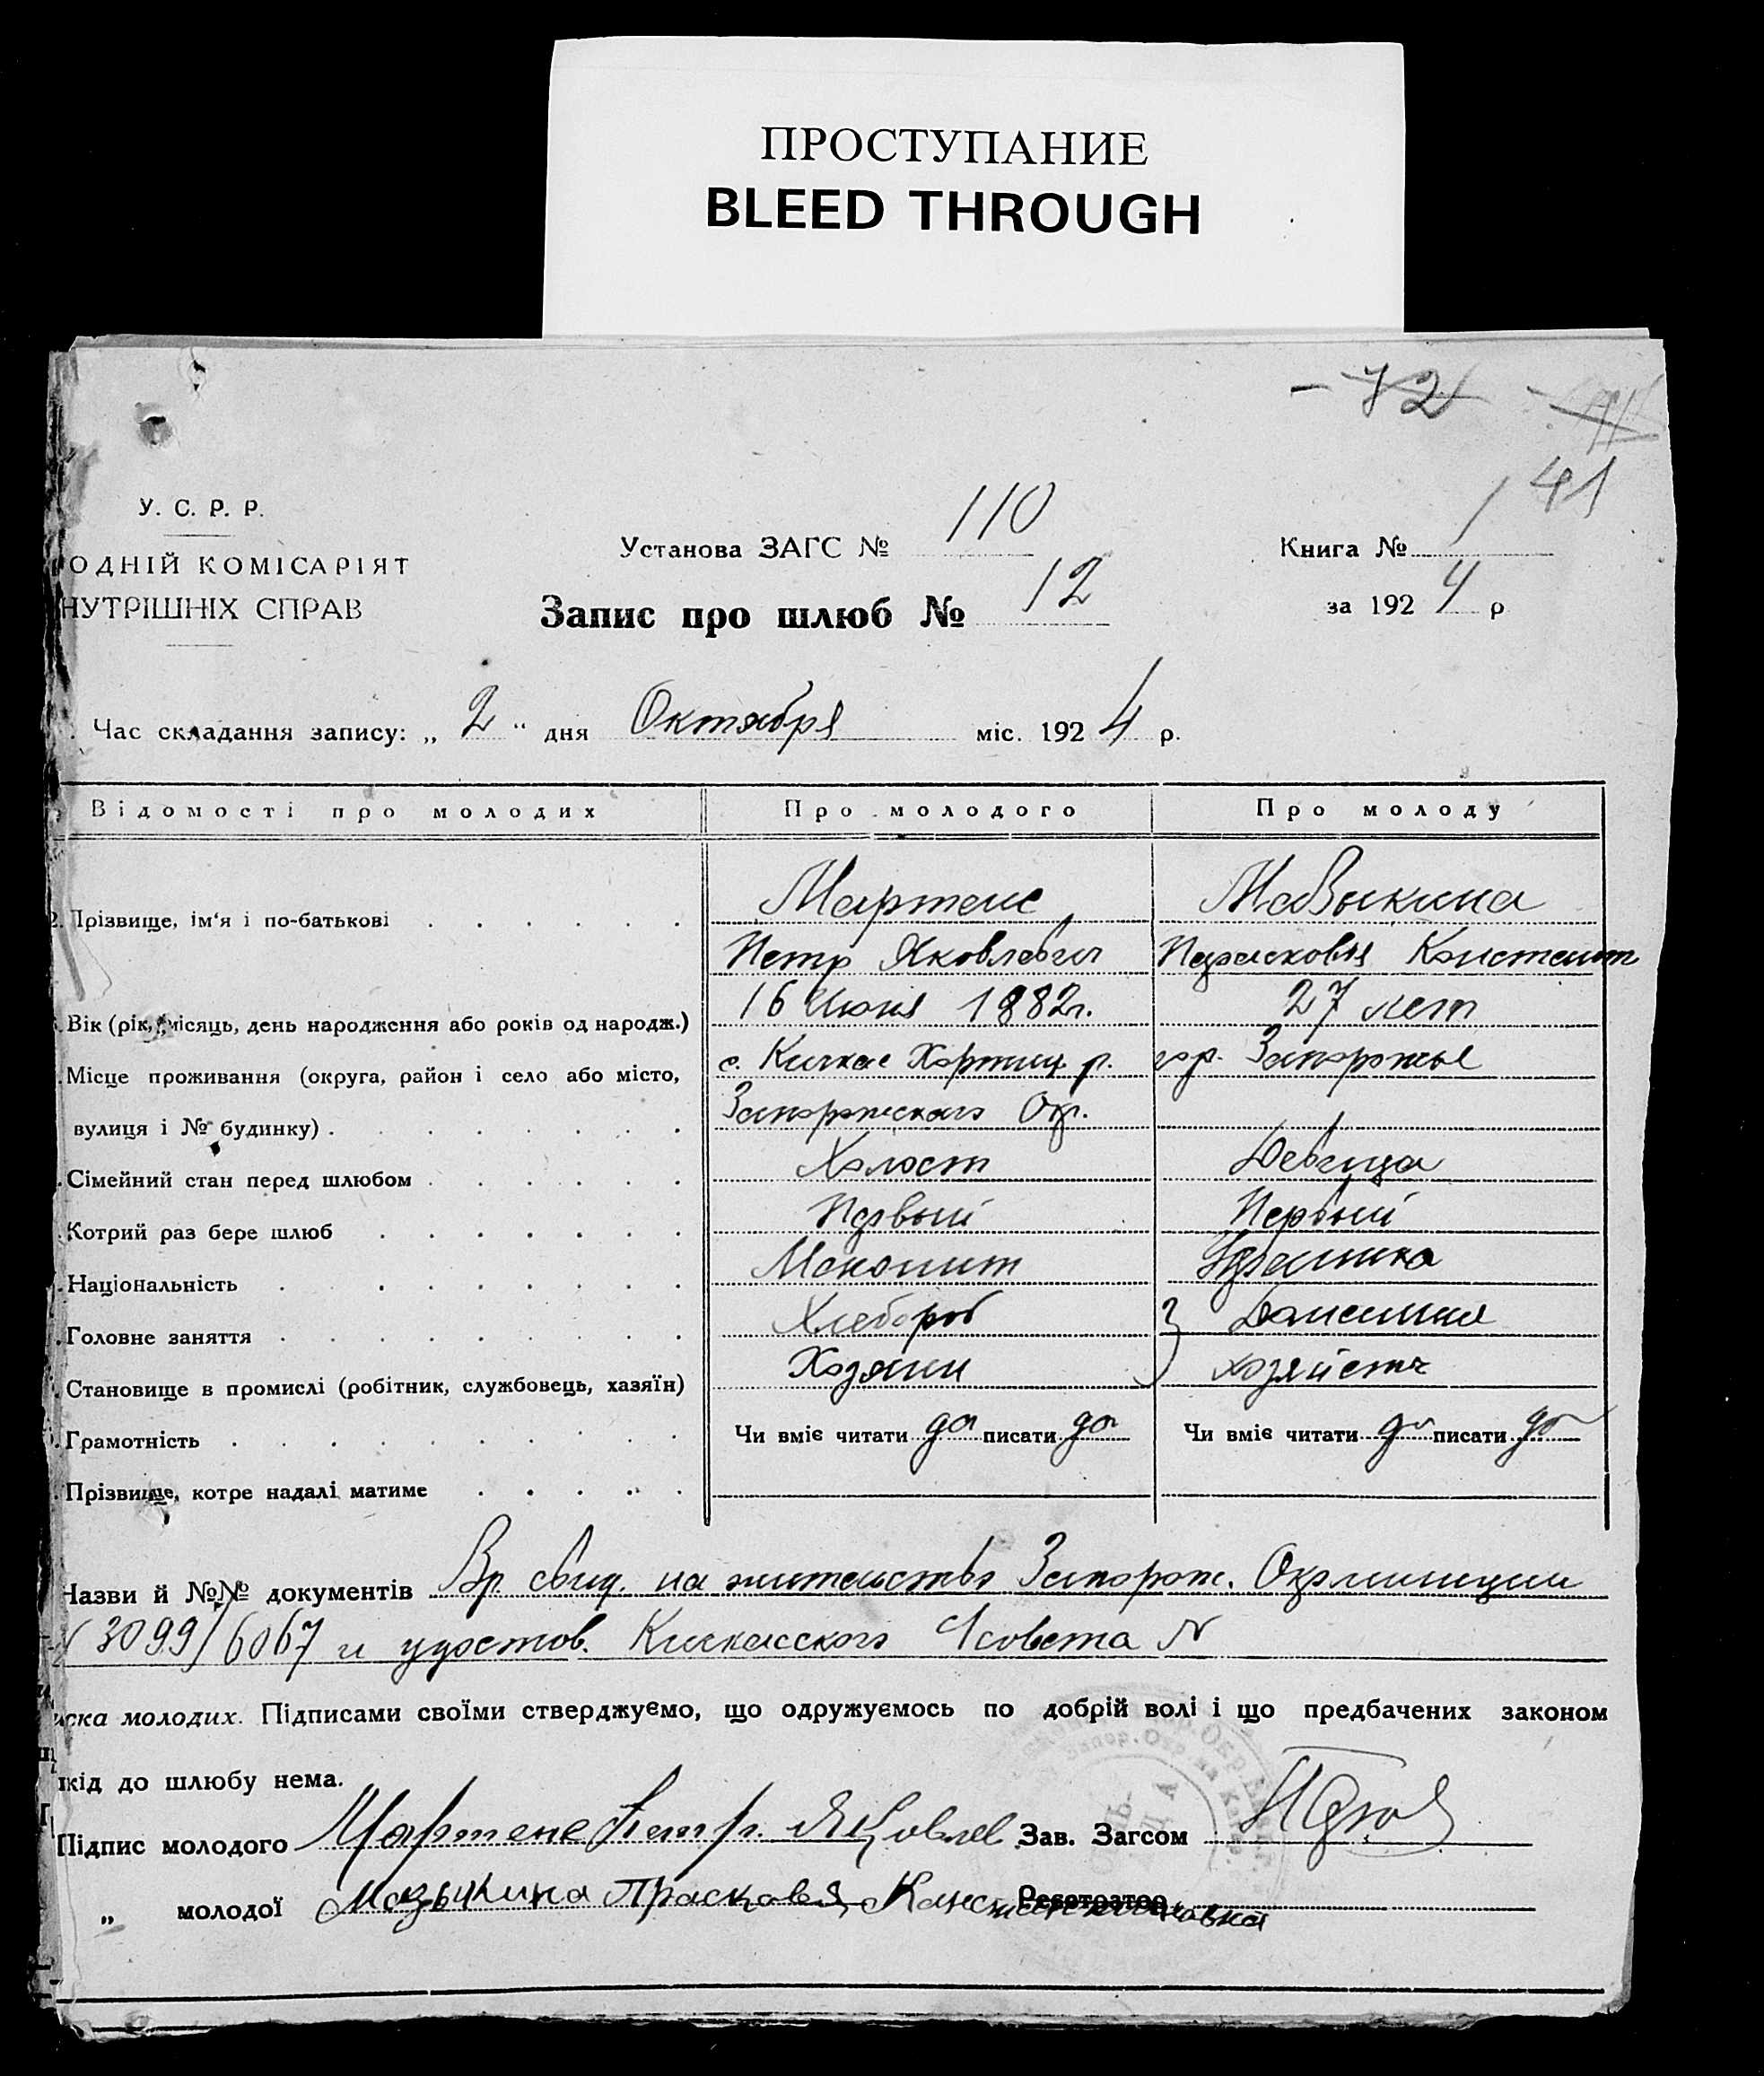 ПРОСТУПАНИЕ
BLEED THROUGH
- 72
41
У. С. Р. Р.
ОДНІЙ КОМІСАРІЯТ
НУТРІШНІХ СПРАВ
Установа ЗАГС № 110
Книга № 1
Запис про шлюб № 12
за 1924 р
Час складання запису: „ 2 “ дня Октября міс. 1924 р.
Відомості про молодих Про молодого Про молоду
2. Прізвище, ім‘я і по-батькові Мартенс Мазыкина
Петр Яковлевич Парасковья Констант
Вік (рік, місяць, день народження або років од народж.) 16 Июня 1882г. 27 лет
Місце проживання (округа, район і село або місто, с. Кичкас Хортиц р. гор. Запорожье
вулиця і № будинку) Запорожскаго Окр.
Сімейний стан перед шлюбом Холост Девица
Котрий раз бере шлюб Первый Первый
Національність Менонит Украинка
Головне заняття Хлебороб Домашня
Становище в промислі (робітник, службовець, хазяїн) Хозяин хозяйств
Грамотність Чи вміє читати да писати да Чи вміє читати да писати да
Прізвище, котре надалі матиме
Назви й №№ документів Вр. свид. на жительство Запорож. Окрмилиции
N 3099/6067 и удостов. Кичкасского С/совета N
иска молодих. Підписами своїми стверджуємо, що одружуємось по добрій волі і що предбачених законом
шкід до шлюбу нема.
Підпис молодого Мартенс Петр. Яковлев Зав. Загсом
„ молодої Мазыкина Прасковея Константиновна Реєстратор